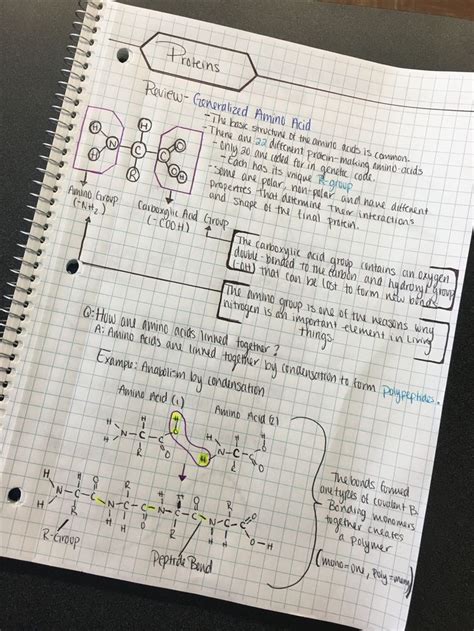 Proteins
Review - Generalized Amino Acid
- The basic structure of the amino acids is common.
- There are 22 different protein-making amino-acids
- only 20 are coded for in genetic code.
- Each has its unique R-group
- Some are polar, non-polar and have different
properties that determine their interactions
and shape of the final protein.
H
H
N
H
C
R
C
O
O
H
Amino Group
(-NH2)
Carboxylic Acid Group
(-COOH)
The carboxylic acid group contains an oxygen
double-bonded to the carbon and hydroxyl group
(OH) that can be lost to form new bonds.
The amino group is one of the reasons why
nitrogen is an important element in living
things.
Q: How are amino acids linked together?
A: Amino Acids are linked together by condensation to form polypeptides.
Example: Anabolism by condensation
Amino Acid (1)
Amino Acid (2)
R-Group
Peptide Bond
The bonds formed
are types of covalent B.
Bonding monomers
together creates
a polymer
(mono=one, poly=many)